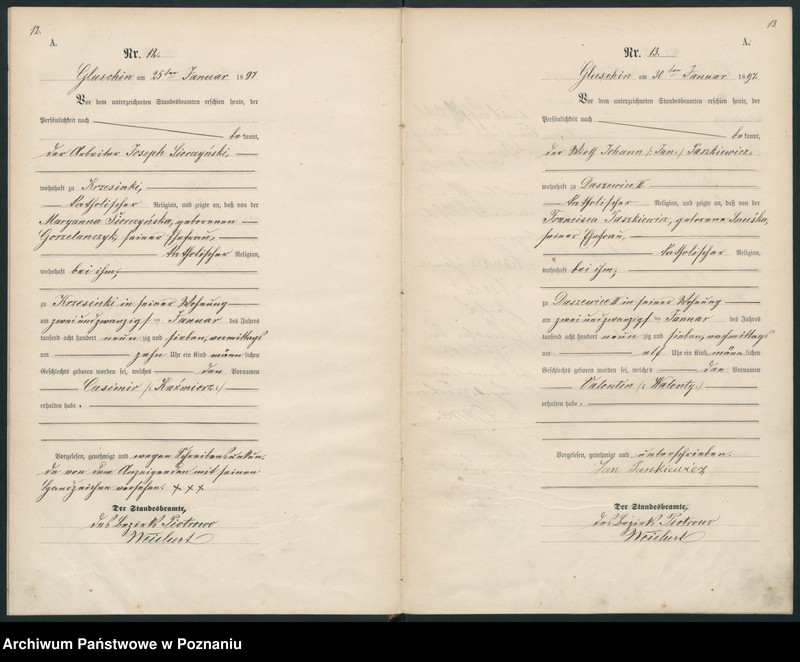 12.
A.
Nr. 12.
Gluschin am 25ten Januar 1897
Vor dem unterzeichneten Standesbeamten erschien heute, der
Persönlichkeit nach
be kannt,
der Arbeiter Joseph Sierczyński,
wohnhaft zu Krzesinki,
katholischer Religion, und zeigte an, daß von der
Maryanna Sierczyńska, geborenen
Gorzelanczyk, seiner Ehefrau,
katholischer Religion,
wohnhaft bei ihm,
zu Krzesinki in seiner Wohnung
am zwei und zwanzigsten Januar des Jahres
tausend acht hundert neun zig und sieben, vormittags
um zehn Uhr ein Kind männlichen
Geschlechts geboren worden sei, welches den Vornamen
Casimir (: Kaźmierz :)
erhalten habe.
Vorgelesen, genehmigt und wegen Schreibensunkun-
de von dem Anzeigenden mit seinem
Handzeichen versehen. + + +
Der Standesbeamte,
des Bezirk Piotrowo
13.
A.
Nr. 13.
Gluschin am 30ten Januar 1897.
Vor dem unterzeichneten Standesbeamten erschien heute, der
Persönlichkeit nach
be kannt,
der Wirth Johann (: Jan :) Taszkiewicz,
wohnhaft zu Daszewice II
katholischer Religion, und zeigte an, daß von der
Francisca Taszkiewicz, geborene
seiner Ehefrau,
katholischer Religion,
wohnhaft bei ihm,
zu Daszewice II in seiner Wohnung
am zwei und zwanzigsten Januar des Jahres
tausend acht hundert neun zig und sieben, nachmittags
um elf Uhr ein Kind männlichen
Geschlechts geboren worden sei, welches den Vornamen
Valentin (: Walenty :)
erhalten habe.
Vorgelesen, genehmigt und unterschrieben.
Jan Taszkiewicz
Der Standesbeamte,
des Bezirk Piotrowo
Archiwum Państwowe w Poznaniu